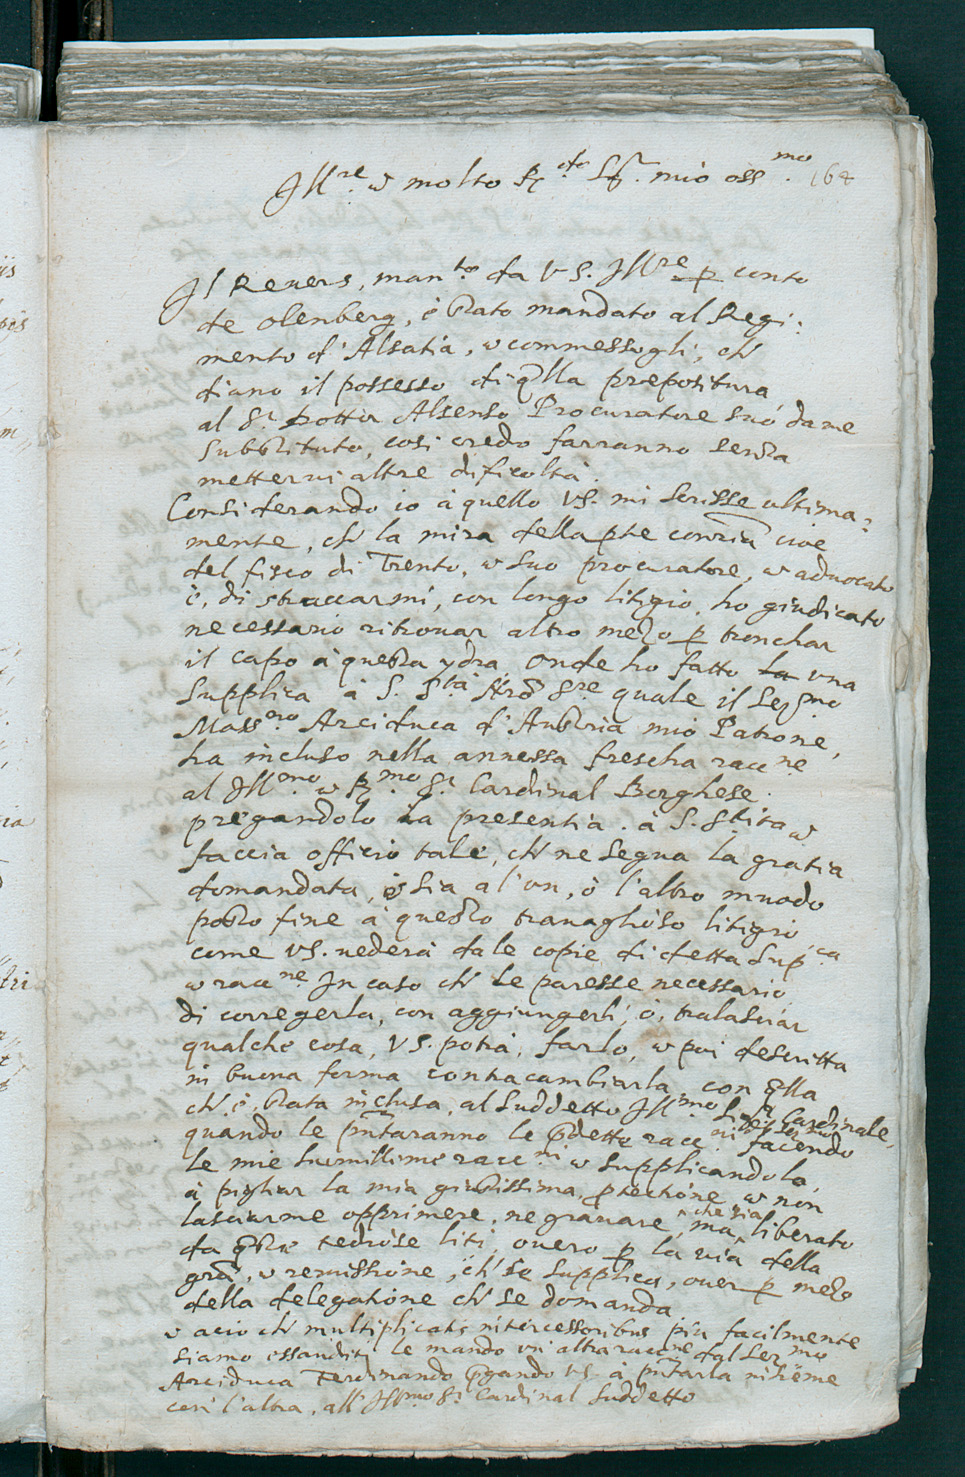 Ill.re et molto R.do Sig.r mio oss.mo 164
Il Revers, man.to da VS. Ill.re p conto
de Olenberg, è stato mandato al Regi:
mento d'Alsatia, et commessogli, ch'
diano il possesso di qlla prepositura
al S.r Dottor Alsenso Procuratore suo da me
substituto, cosi credo farranno senza
mettervi altre dificoltà.
Considerando io à quello VS. mi scrisse ultima:
mente, ch' la mira della pte contria cioè
del fisco di Trento, et suo procuratore, et advocato
è, di straccarmi, con longo litigio, ho giudicato
necessario ritrovar altro mezo p tronchar
il capo à questa ydra, Onde ho fatto la una
Supplica à S. S.tà Nro S.re quale il Ser.mo
Mass.no Arciduca d'Austria mio Patrone,
ha incluso nella annessa frescha racc.ne
al Ill.mo et R.mo S.r Cardinal Borghese.
pregandolo la presentia. à S. S.tita et
faccia officio tale, ch' ne segua la gratia
domandata, et sia a l'un, ò l'altro muodo
posto fine à questo travaglioso litigio
come VS. vederà da le copie di detta Sup.ca
et racc.ne In caso ch' Le paresse necessario
di corregerla, con aggiungerli, ò, tralasciar
qualche cosa, VS. potrà, farlo, et poi descritta
in buona forma contracambiarla, con qlla
ch' è, stata inclusa, al suddetto Ill.mo Sig.r Cardinale,
quando le pntaranno le pdette racc.ni facendo
le mie humillime racc.ni et supplicandolo,
à pigliar la mia giustissima ptectione et non
lasciarme opprimere, ne gravare, ma che sia liberato
da qste tediose liti, overo p la via della
gra, et remissione, ch' se supplica, over p mezo
della delegatione ch' se domanda
et acio ch' multiplicatis intercessoribus più facilmente
siamo essauditi le mando un'altra racc.ne dal Ser.mo
Arciduca Ferdinando pgando VS. à pntarla insieme
con l'altra, all' Ill.mo S.r Cardinal suddetto